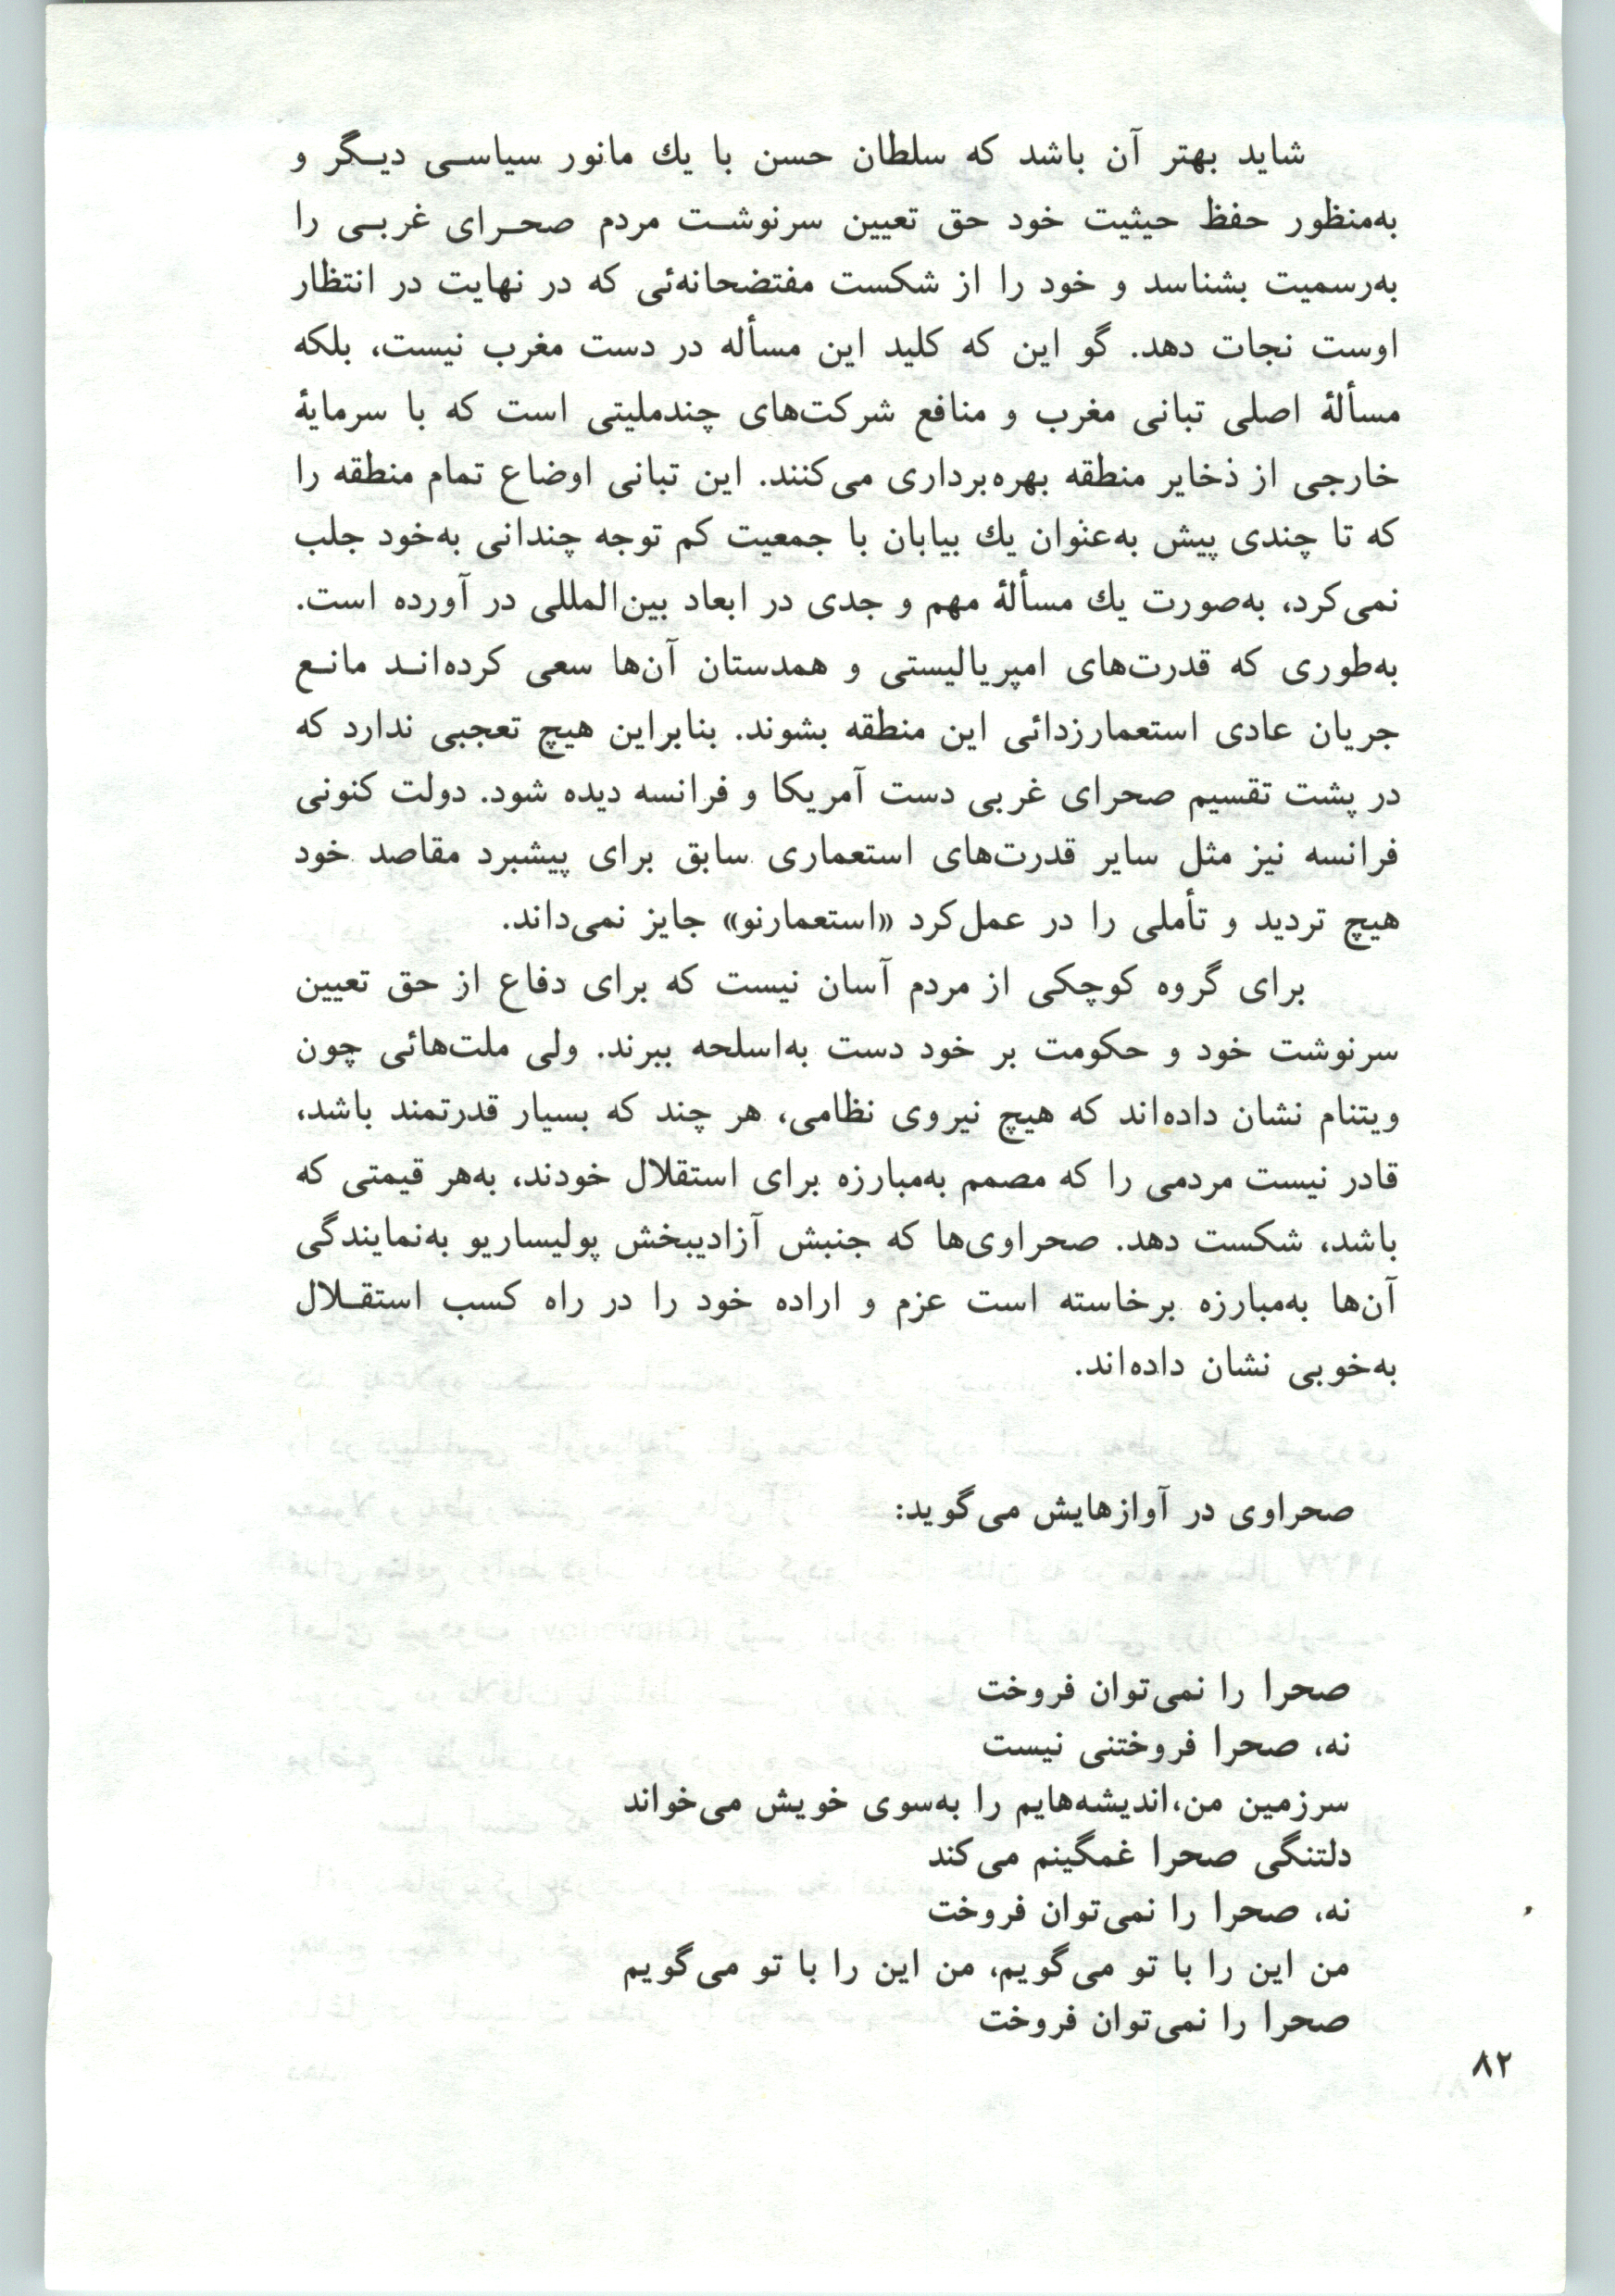 شاید بهتر آن باشد که سلطان حسن با یك مانور سیاسی دیگر و
به‌منظور حفظ حیثیت خود حق تعیین سرنوشت مردم صحرای غربی را
به‌رسمیت بشناسد و خود را از شکست مفتضحانه‌ئی که در نهایت در انتظار
اوست نجات دهد. گو این که کلید این مسأله در دست مغرب نیست، بلکه
مسألهٔ اصلی تبانی مغرب و منافع شرکت‌های چندملیتی است که با سرمایهٔ
خارجی از ذخایر منطقه بهره‌برداری می‌کنند. این تبانی اوضاع تمام منطقه را
که تا چندی پیش به‌عنوان یك بیابان با جمعیت کم توجه چندانی به‌خود جلب
نمی‌کرد، به‌صورت یك مسألهٔ مهم و جدی در ابعاد بین‌المللی در آورده است.
به‌طوری که قدرت‌های امپریالیستی و همدستان آن‌ها سعی کرده‌اند مانع
جریان عادی استعمارزدائی این منطقه بشوند. بنابراین هیچ تعجبی ندارد که
در پشت تقسیم صحرای غربی دست آمریکا و فرانسه دیده شود. دولت کنونی
فرانسه نیز مثل سایر قدرت‌های استعماری سابق برای پیشبرد مقاصد خود
هیچ تردید و تأملی را در عمل‌کرد «استعمارنو» جایز نمی‌داند.
برای گروه کوچکی از مردم آسان نیست که برای دفاع از حق تعیین
سرنوشت خود و حکومت بر خود دست به‌اسلحه ببرند. ولی ملت‌هائی چون
ویتنام نشان داده‌اند که هیچ نیروی نظامی، هر چند که بسیار قدرتمند باشد،
قادر نیست مردمی را که مصمم به‌مبارزه برای استقلال خودند، به‌هر قیمتی که
باشد، شکست دهد. صحراوی‌ها که جنبش آزادیبخش پولیساریو به‌نمایندگی
آن‌ها به‌مبارزه برخاسته است عزم و اراده خود را در راه کسب استقلال
به‌خوبی نشان داده‌اند.
صحراوی در آوازهایش می‌گوید:
صحرا را نمی‌توان فروخت
نه، صحرا فروختنی نیست
سرزمین من،اندیشه‌هایم را به‌سوی خویش می‌خواند
دلتنگی صحرا غمگینم می‌کند
نه، صحرا را نمی‌توان فروخت
من این را با تو می‌گویم، من این را با تو می‌گویم
صحرا را نمی‌توان فروخت
۸۲